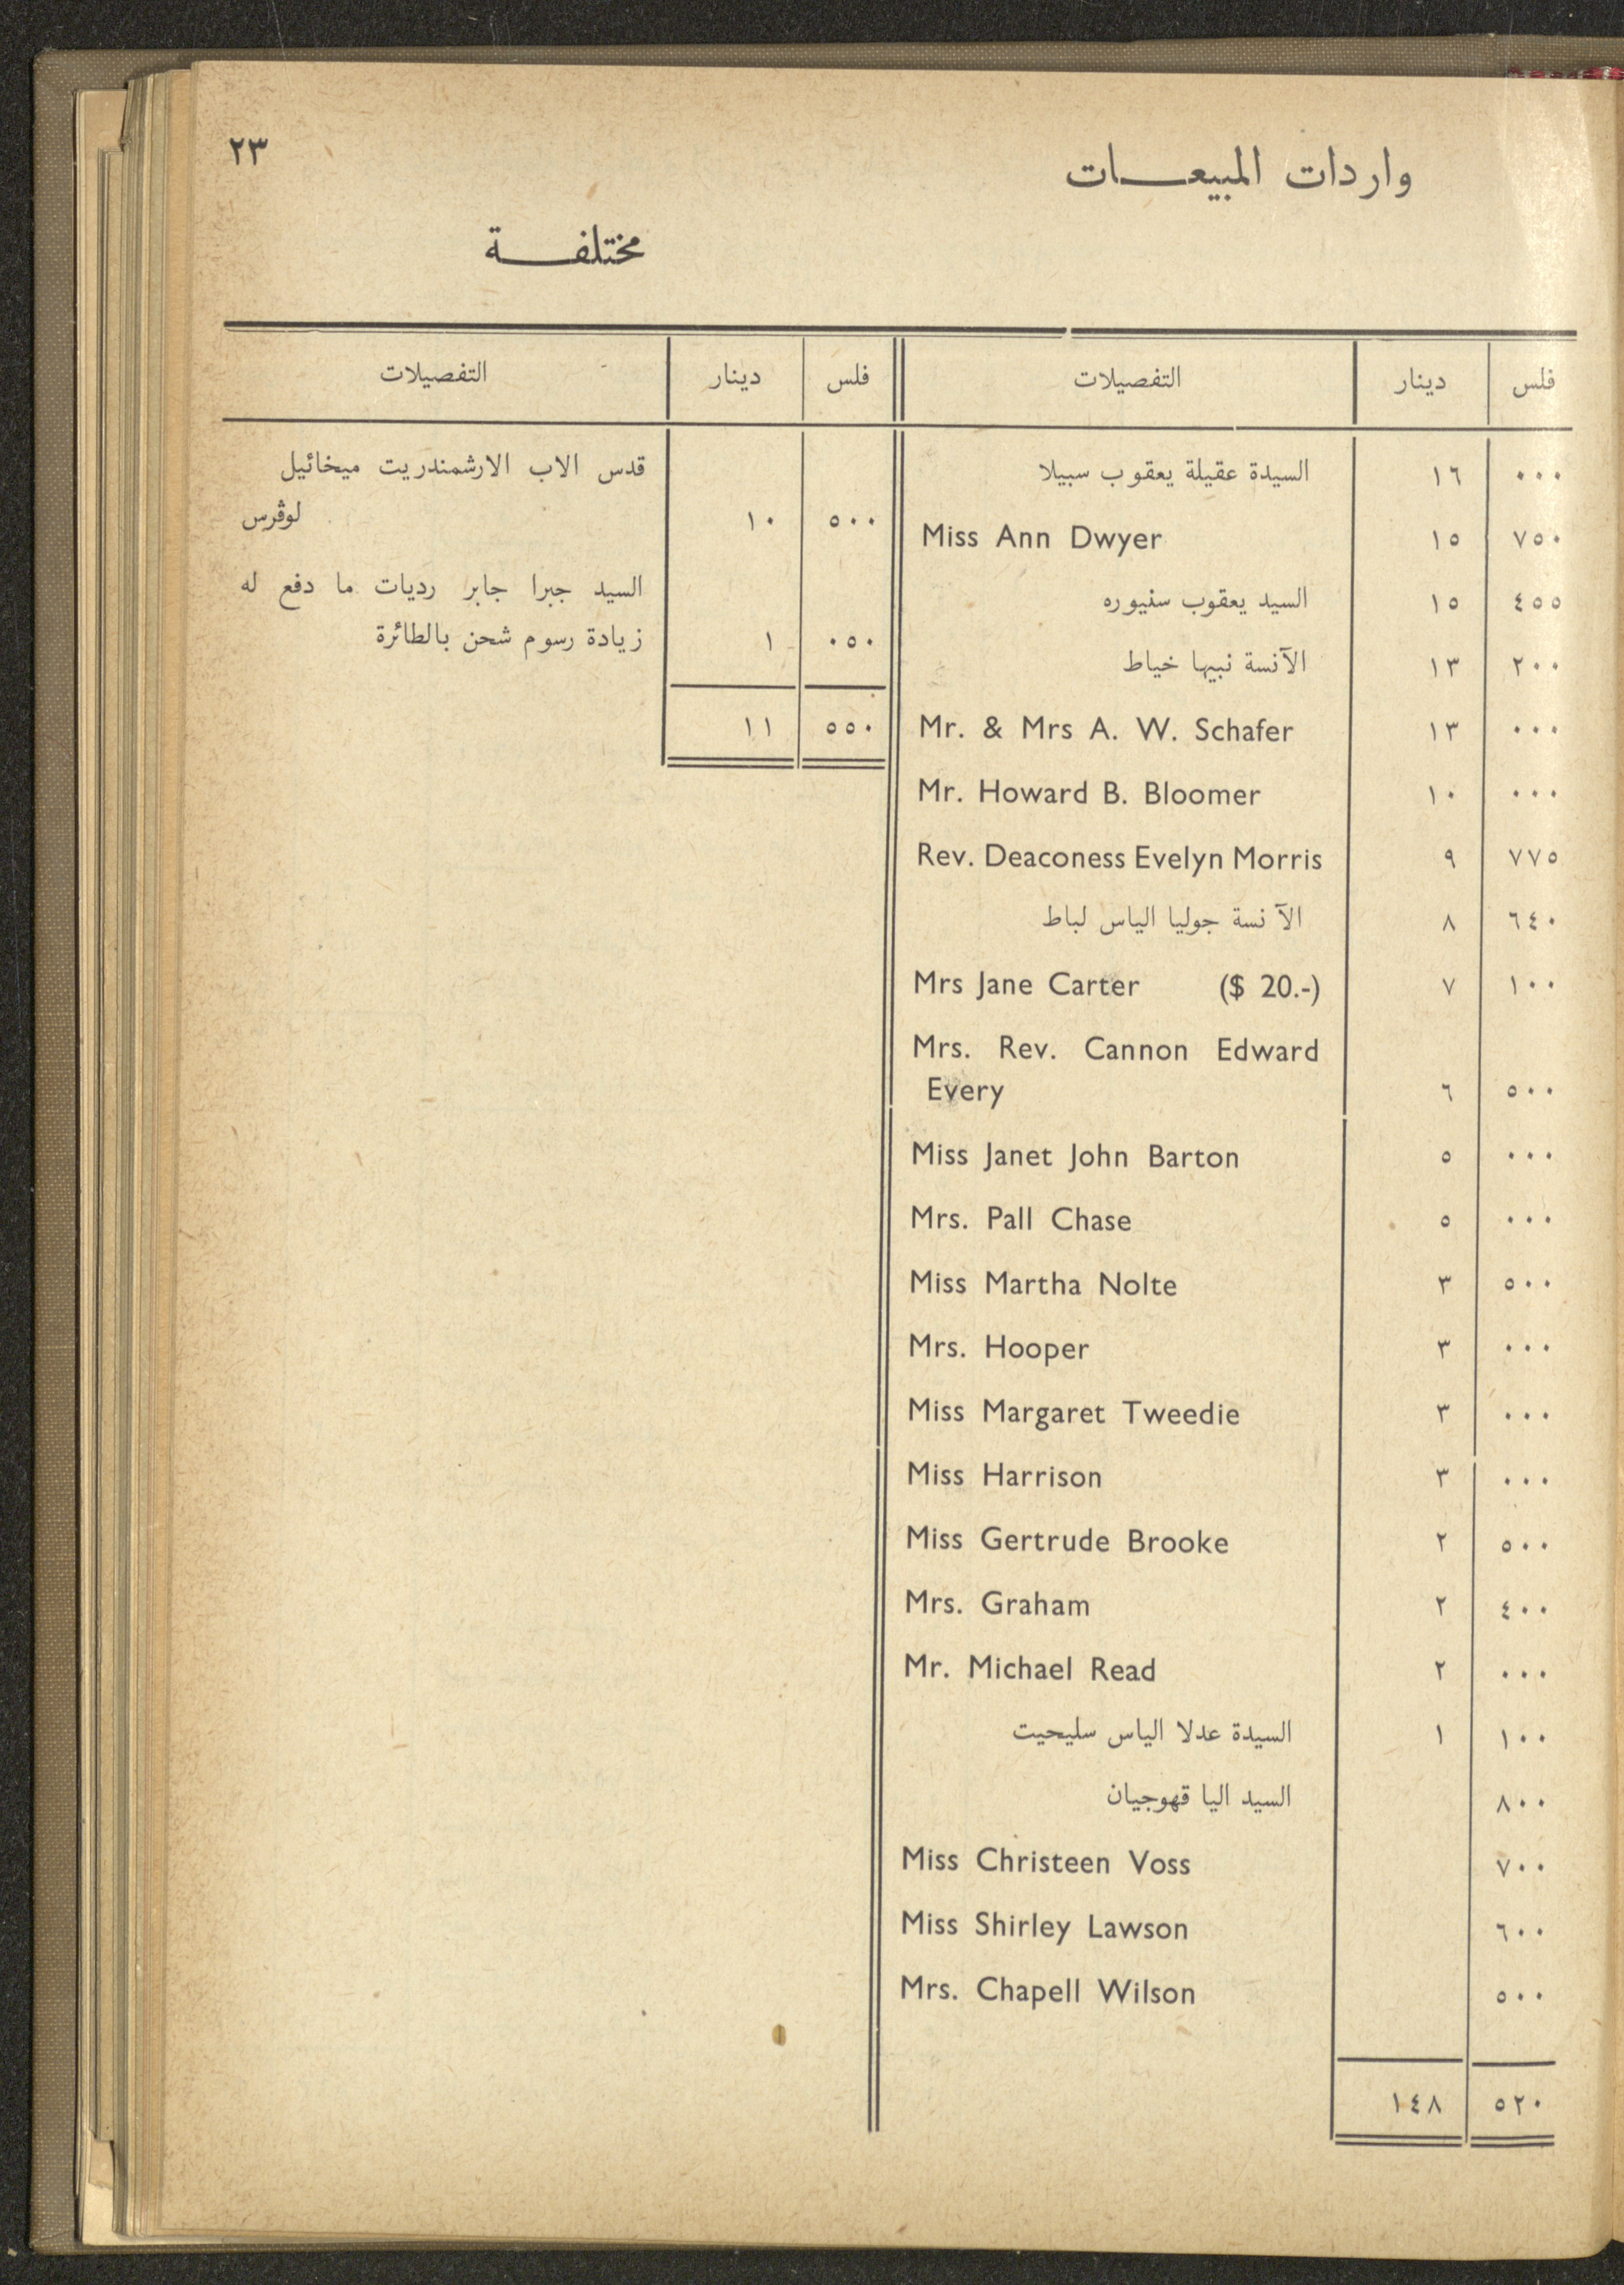 ٢٣
واردات المبيعات
مختلفة
فلس دينار التفصيلات
٠٠٠ ١٦ السيدة عقيلة يعقوب سبيلا
٧٥٠ ١٥ Miss Ann Dwyer
٤٥٥ ١٥ السيد يعقوب سنيوره
٢٠٠ ١٣ الآنسة نبيها خياط
٠٠٠ ١٣ Mr. & Mrs A. W. Schafer
٠٠٠ ١٠ Mr. Howard B. Bloomer
٧٧٥ ٩ Rev. Deaconess Evelyn Morris
٦٤٠ ٨ الآنسة جوليا الياس لباط
١٠٠ ٧ Mrs Jane Carter ($ 20.-)
Mrs. Rev. Cannon Edward
٥٠٠ ٦ Every
٠٠٠ ٥ Miss Janet John Barton
٠٠٠ ٥ Mrs. Pall Chase
٥٠٠ ٣ Miss Martha Nolte
٠٠٠ ٣ Mrs. Hooper
٠٠٠ ٣ Miss Margaret Tweedie
٠٠٠ ٣ Miss Harrison
٥٠٠ ٢ Miss Gertrude Brooke
٤٠٠ ٢ Mrs. Graham
٠٠٠ ٢ Mr. Michael Read
١٠٠ ١ السيدة عدلا الياس سليحيت
٨٠٠ السيد اليا قهوجيان
٧٠٠ Miss Christeen Voss
٦٠٠ Miss Shirley Lawson
٥٠٠ Mrs. Chapell Wilson
٥٢٠ ١٤٨
فلس دينار التفصيلات
قدس الاب الارشمندريت ميخائيل
٥٠٠ ١٠ لوڤرس
السيد جبرا جابر رديات ما دفع له
٠٥٠ ١ زيادة رسوم شحن بالطائرة
٥٥٠ ١١